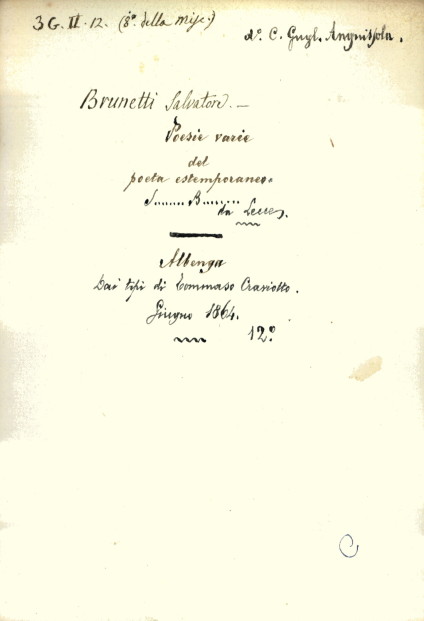 3 G. II. 12. (8º. della misc.)
dº. C. Gugl. Anguissola.
Brunetti Salvatore. —
Poesie varie
del
poeta estemporaneo
S...... B.......
da Lecce.
Albenga
Dai tipi di Tommaso Craviotto.
Giugno 1864.
12º
C